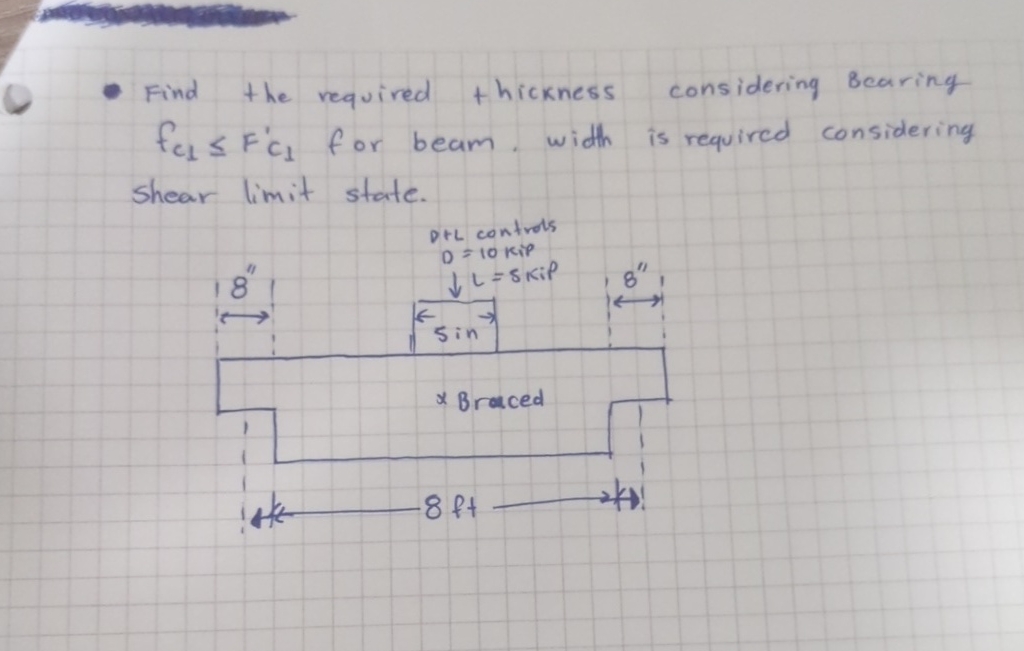 • Find the required thickness considering Bearing
fc⊥ ≤ F'c⊥ for beam. width is required considering
shear limit state.
D+L controls
D = 10 Kip
8" ↓ L = 5 Kip 8"
5 in
* Braced
8 ft